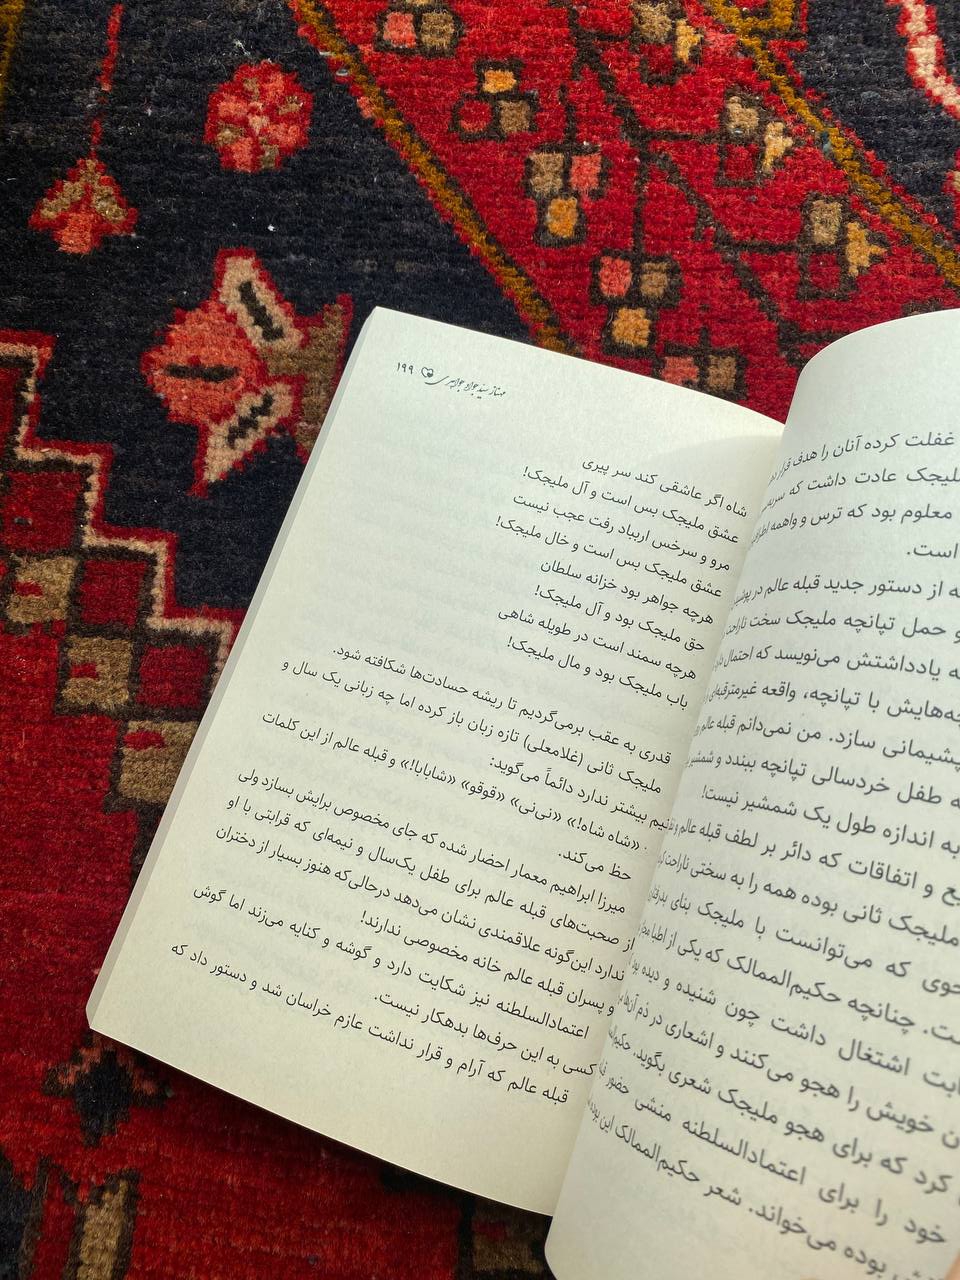 غفلت کرده آنان را هدف قرار
ملیجک عادت داشت که
معلوم بود که ترس و واهمه
است.
از دستور جدید قبله عالم در
و حمل تپانچه ملیجک سخت ناراحت
یادداشتش می‌نویسد که احتمال
با تپانچه، واقعه غیرمترقبه‌ای
پشیمانی سازد. من نمی‌دانم قبله عالم
طفل خردسالی تپانچه ببندد و شمشیر
به اندازه طول یک شمشیر نیست!
و اتفاقات که دائر بر لطف قبله عالم و
ملیجک ثانی بوده همه را به سختی ناراحت
که می‌توانست با ملیجک بنای
چنانچه حکیم‌الممالک که یکی از اطبا
اشتغال داشت چون شنیده و دیده بود
خویش را هجو می‌کنند و اشعاری در ذم آن‌ها
کرد که برای هجو ملیجک شعری بگوید.
خود را برای اعتمادالسلطنه منشی حضور
بوده می‌خواند. شعر حکیم‌الممالک این بوده
مهناز سیدجواد جواهری ۱۹۹
شاه اگر عاشقی کند سر پیری
عشق ملیجک بس است و آل ملیجک!
مرو و سرخس ارباد رفت عجب نیست
عشق ملیجک بس است و خال ملیجک!
هرچه جواهر بود خزانه سلطان
حق ملیجک بود و آل ملیجک!
هرچه سمند است در طویله شاهی
باب ملیجک بود و مال ملیجک!
قدری به عقب برمی‌گردیم تا ریشه حسادت‌ها شکافته شود.
ملیجک ثانی (غلامعلی) تازه زبان باز کرده اما چه زبانی یک سال و
نیم بیشتر ندارد دائماً می‌گوید:
«شاه شاه!» «نی‌نی» «قوقو» «شابابا!» و قبله عالم از این کلمات
حظ می‌کند.
میرزا ابراهیم معمار احضار شده که جای مخصوص برایش بسازد ولی
از صحبت‌های قبله عالم برای طفل یک‌سال و نیمه‌ای که قرابتی با او
ندارد این‌گونه علاقمندی نشان می‌دهد درحالی‌که هنوز بسیار از دختران
و پسران قبله عالم خانه مخصوصی ندارند!
اعتمادالسلطنه نیز شکایت دارد و گوشه و کنایه می‌زند اما گوش
کسی به این حرف‌ها بدهکار نیست.
قبله عالم که آرام و قرار نداشت عازم خراسان شد و دستور داد که